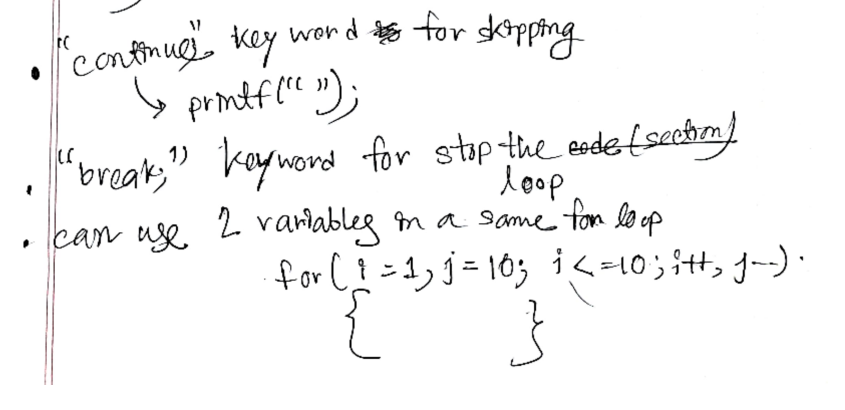 • "continue;" key word for skipping
↳ printf(" ");
• "break;" keyword for stop the code (section)
loop
• can use 2 variables in a same for loop
for ( i = 1, j = 10; i <= 10; i++, j--).
{ }